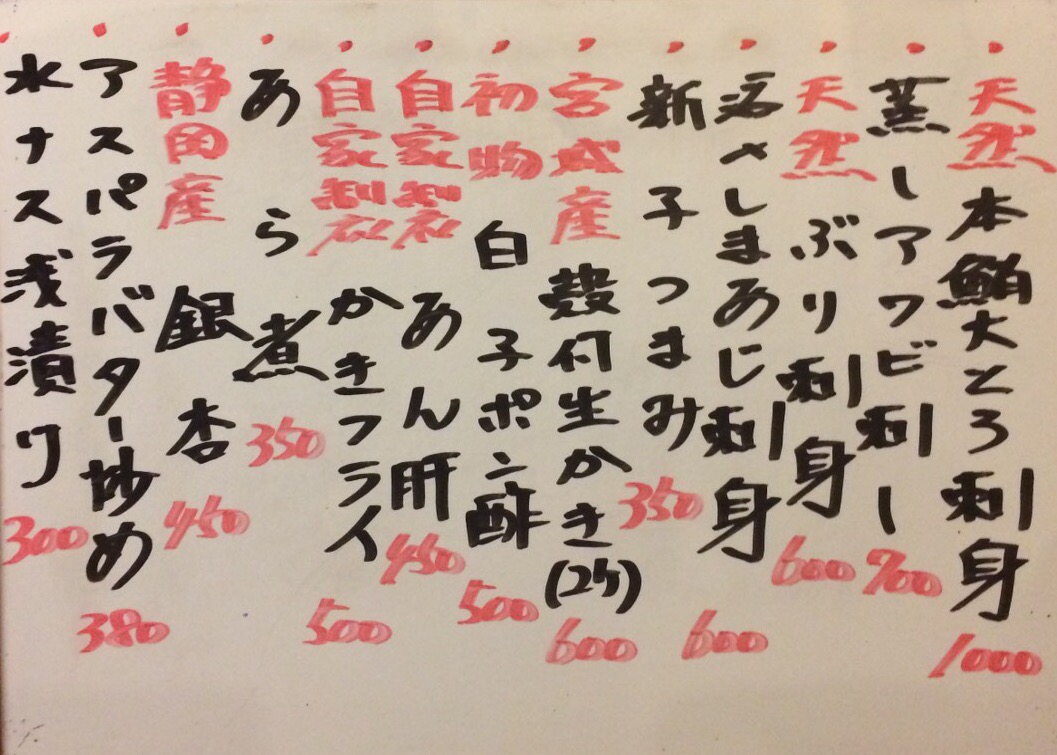 ・天然本鮪大とろ刺身 1000
・蒸しアワビ刺し 700
・天然ぶり刺身 600
・活〆しまあじ刺身 600
・新子つまみ 350
・宮城産殻付生かき(2ケ) 600
・初物白子ポン酢 500
・自家製あん肝 450
・自家製かきフライ 500
・あら煮 350
・静岡産銀杏 450
・アスパラバター炒め 380
・水ナス浅漬け 300